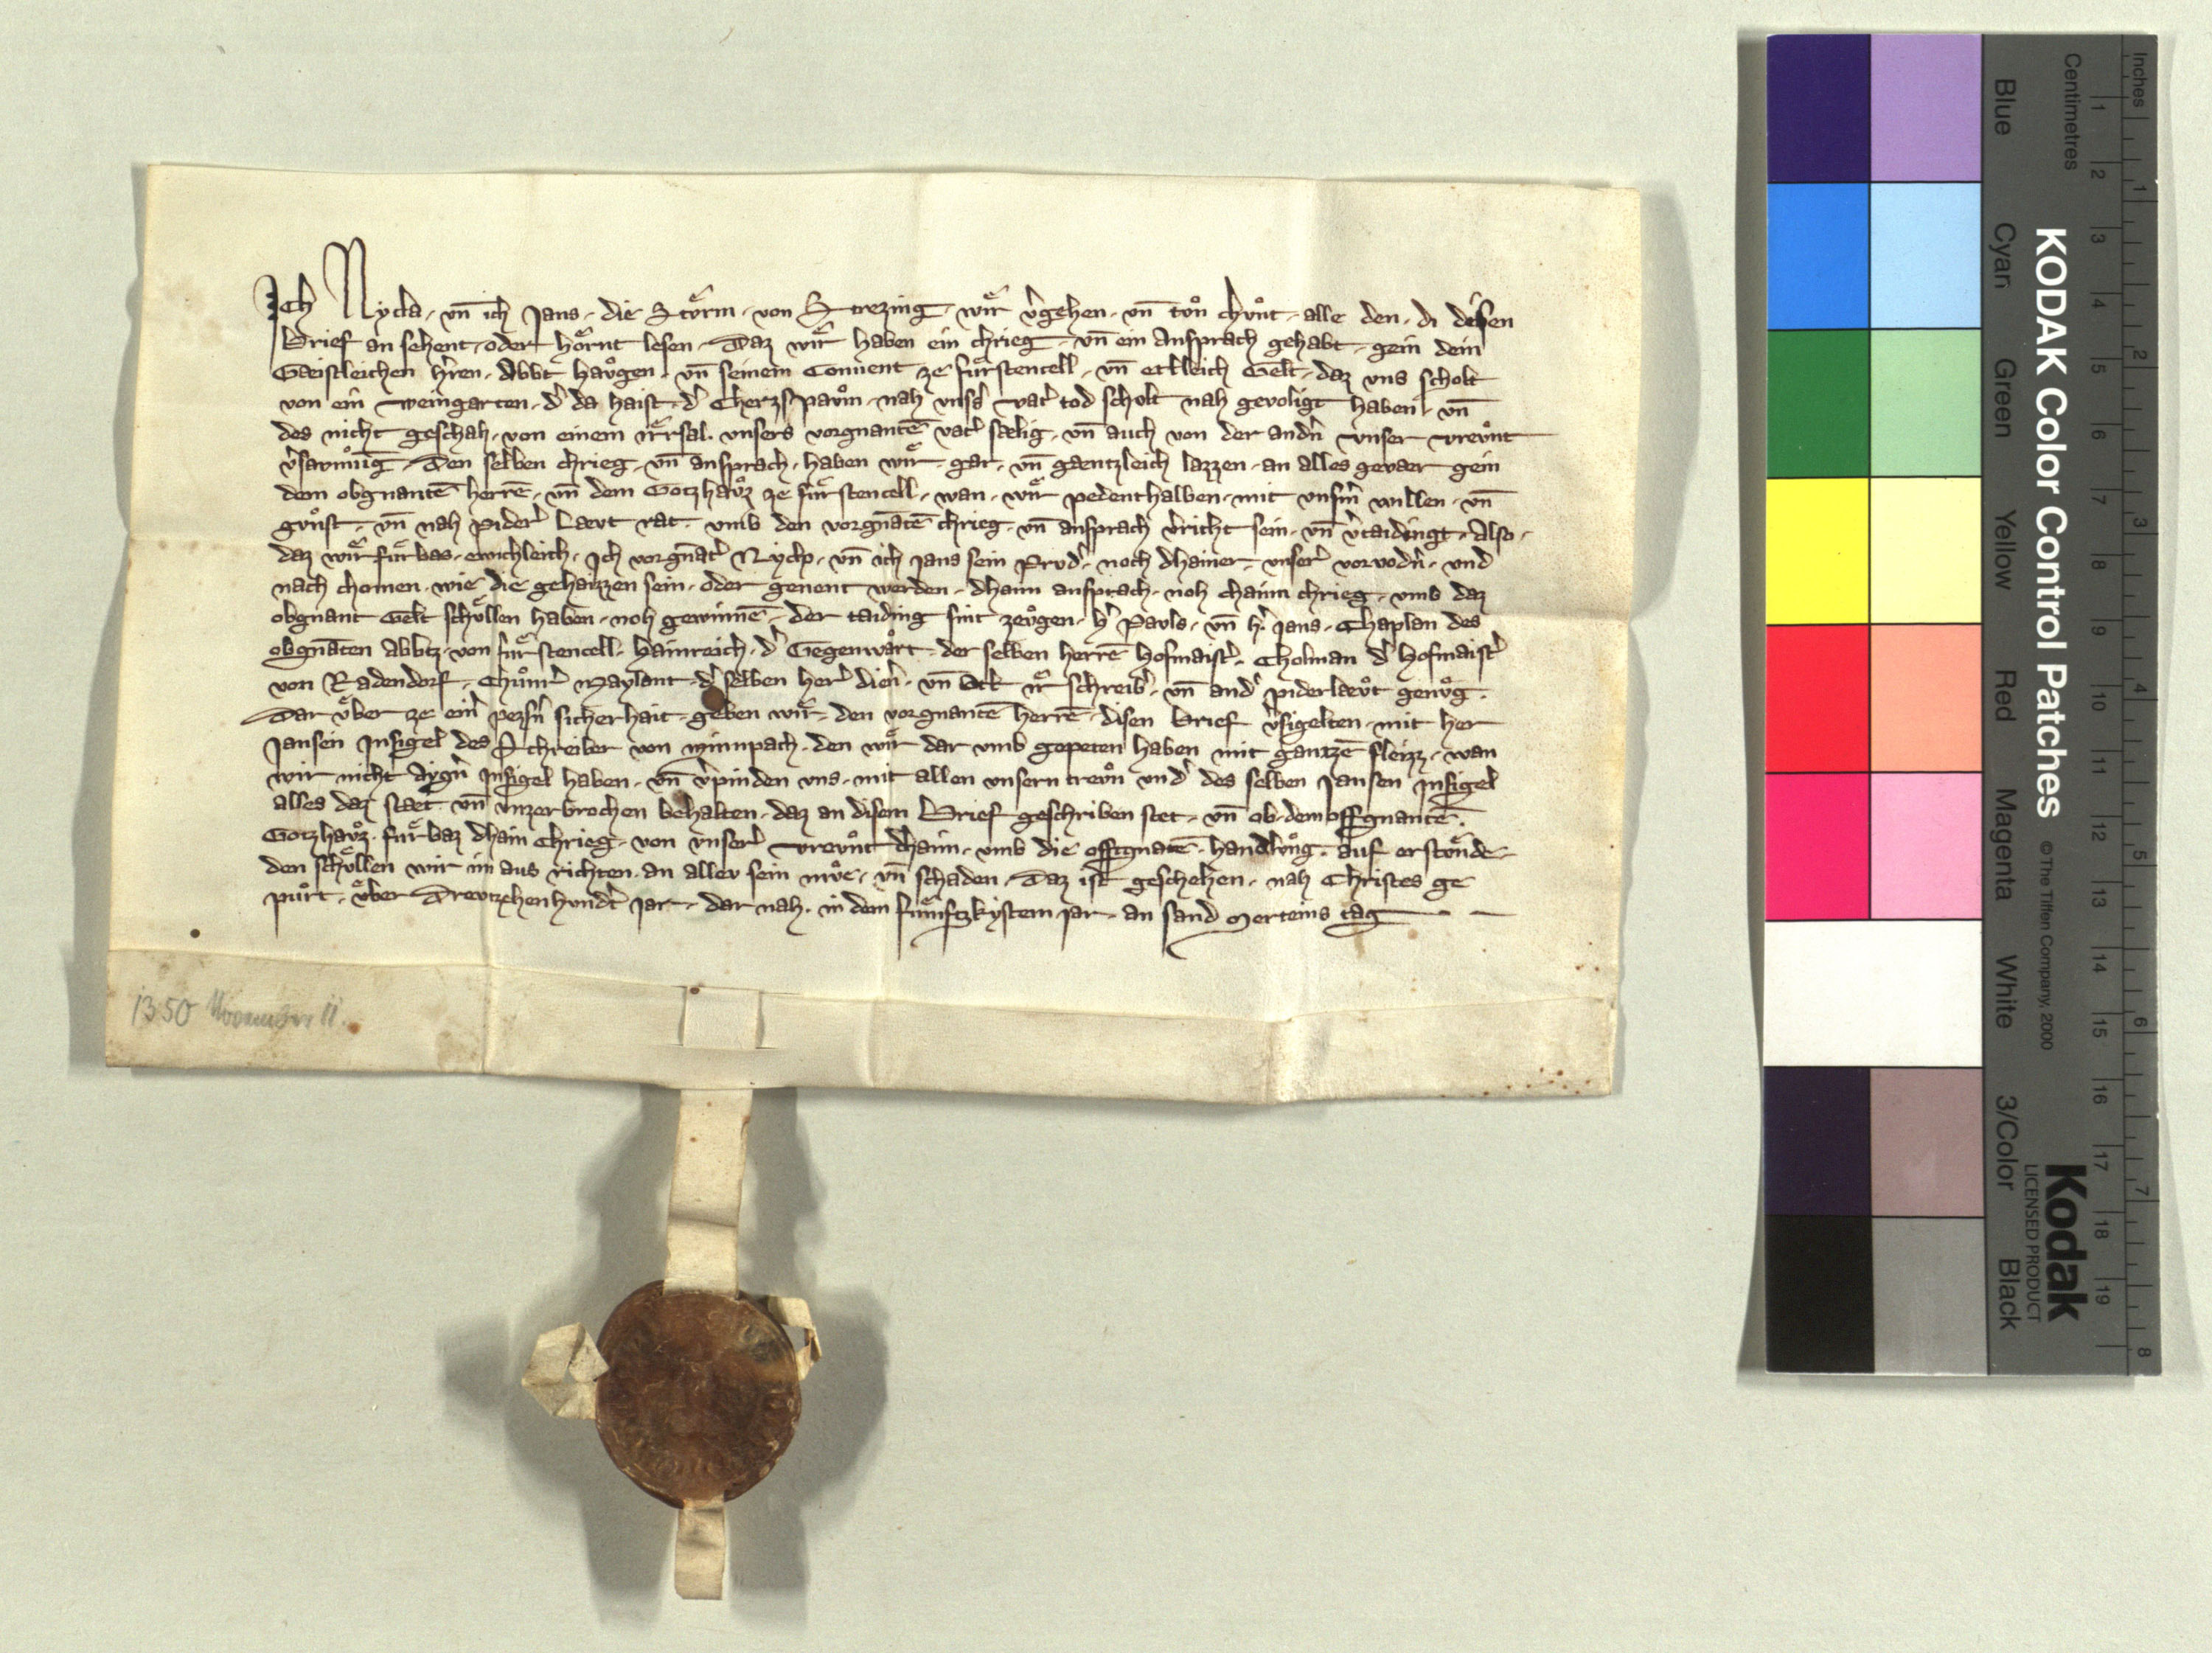 Ich Nycla · vn̄ ich Jans · die Stöͤrm · von Strezing · wiͤr v̓gehen · vn̄ tuͦn chuͦnt · alle den · di disen
Brief an sehent · oder hoͤrnt lesen · Daz wiͤr haben ein chrieg · vn̄ ein ansprach gehabt · gein dein
Gaeistleichen h̓ren · Abbt Haugen · vn̄ seinem Conuent ze fuͤrstencell · vn̄ etleich Gelt · daz vns scholt
von ein weingarten · d̓ da haist · d̓ Cherzspaͮm · nah vnss̓ vat̓ tod scholt nah gevoligt haben · vn̄
des nicht geschah · von einem irrsal · vnsers vorgnantē vat̓ sælig · vn̄ auch von der andn̓ vnser vreuͦnt
v̓saumuͦng · Den selben chrieg · vn̄ ansprach · haben wiͤr · gar · vn̄ gaentzleich lazzen · an alles gevaer gein
dem obgnantē herrē · vn̄ dem Gotzhauͦz ze fuͤrstencell · wan · wiͤr pedenthalben · mit vnsm̓ willen · vn̄
guͦnst · vn̄ nah pider̓ Laevt rat · vmb den vorgnātē chrieg · vn̄ ansprach v̓richt sein · vn̄ v̓taidingt · Also ·
daz wiͤr fuͤrbas · ewichleich · Ich vorgnat̓ Nycla · vn̄ ich Jans sein Prvd̓ · noch dhainer · vnser̓ vorvodn̓ · vnd
nach chomen · wie die gehaizzen sein · oder genent werden · dhain ansprach · noh chain chrieg · vmb daz
obgnant Gelt schuͤllen haben · noh gewinnē · der taiding sint zeuͦgen · h̓ Pauls · vn̄ h̓ Jans · Chaplan des
obgnāten Abbtz · von fuͤrstencell · Hainreich · d̓ Gegenwart · der selben herrē Hofmaist̓ · Cholman d̓ Hofmaist̓
von Radendorf · Chuͦnr̓ Maylant · d̓ selben her̓ dien̓ · vn̄ Ott ir̓ schreib̓ · vn̄ and̓ piderlaeuͦt genuͦg ·
Dar uͤber ze ein̓ pezsn̓ sicherhait · geben wiͤr · den vorgnantē herrē · disen Brief v̓sigelten · mit her
Jansen Insigel des Schreiber von Minnpach · den wiͤr dar vmb gepeten haben mit gantzē fleizz · wan
wir nicht aygn̓ Insigel haben · vn̄ v̓pinden vns · mit allen vnsern treuͦn vnd̓ des selben Jansen Insigel
alles daz staet vn̄ vnzerbrochen behalten · daz an disem Brief geschriben stet · vn̄ ob · dem offgnantē ·
Gotzhauͦz · fuͤrbaz dhain Chrieg · von vnser̓ vreuͦnt dhaim · vmb die offtgnatē · handluͦng · auf erstuͤnde
den schuͤllen wir im aus richten · an aller sein muͤe · vn̄ schaden · Daz ist geschehen · nah Christes ge
puͦrt · uͤber Dreutzehenhundt̓ Jar · dar nah · in dem fuͤmftzkystem jar · an sand Merteins tag
1350 November 11.
Inches
Centimetres
1 2 3 4 5 6 7 8
1 2 3 4 5 6 7 8 9 10 11 12 13 14 15 16 17 18 19
KODAK Color Control Patches
© The Tiffen Company, 2000
Kodak
LICENSED PRODUCT
Blue
Cyan
Green
Yellow
Red
Magenta
White
3/Color
Black